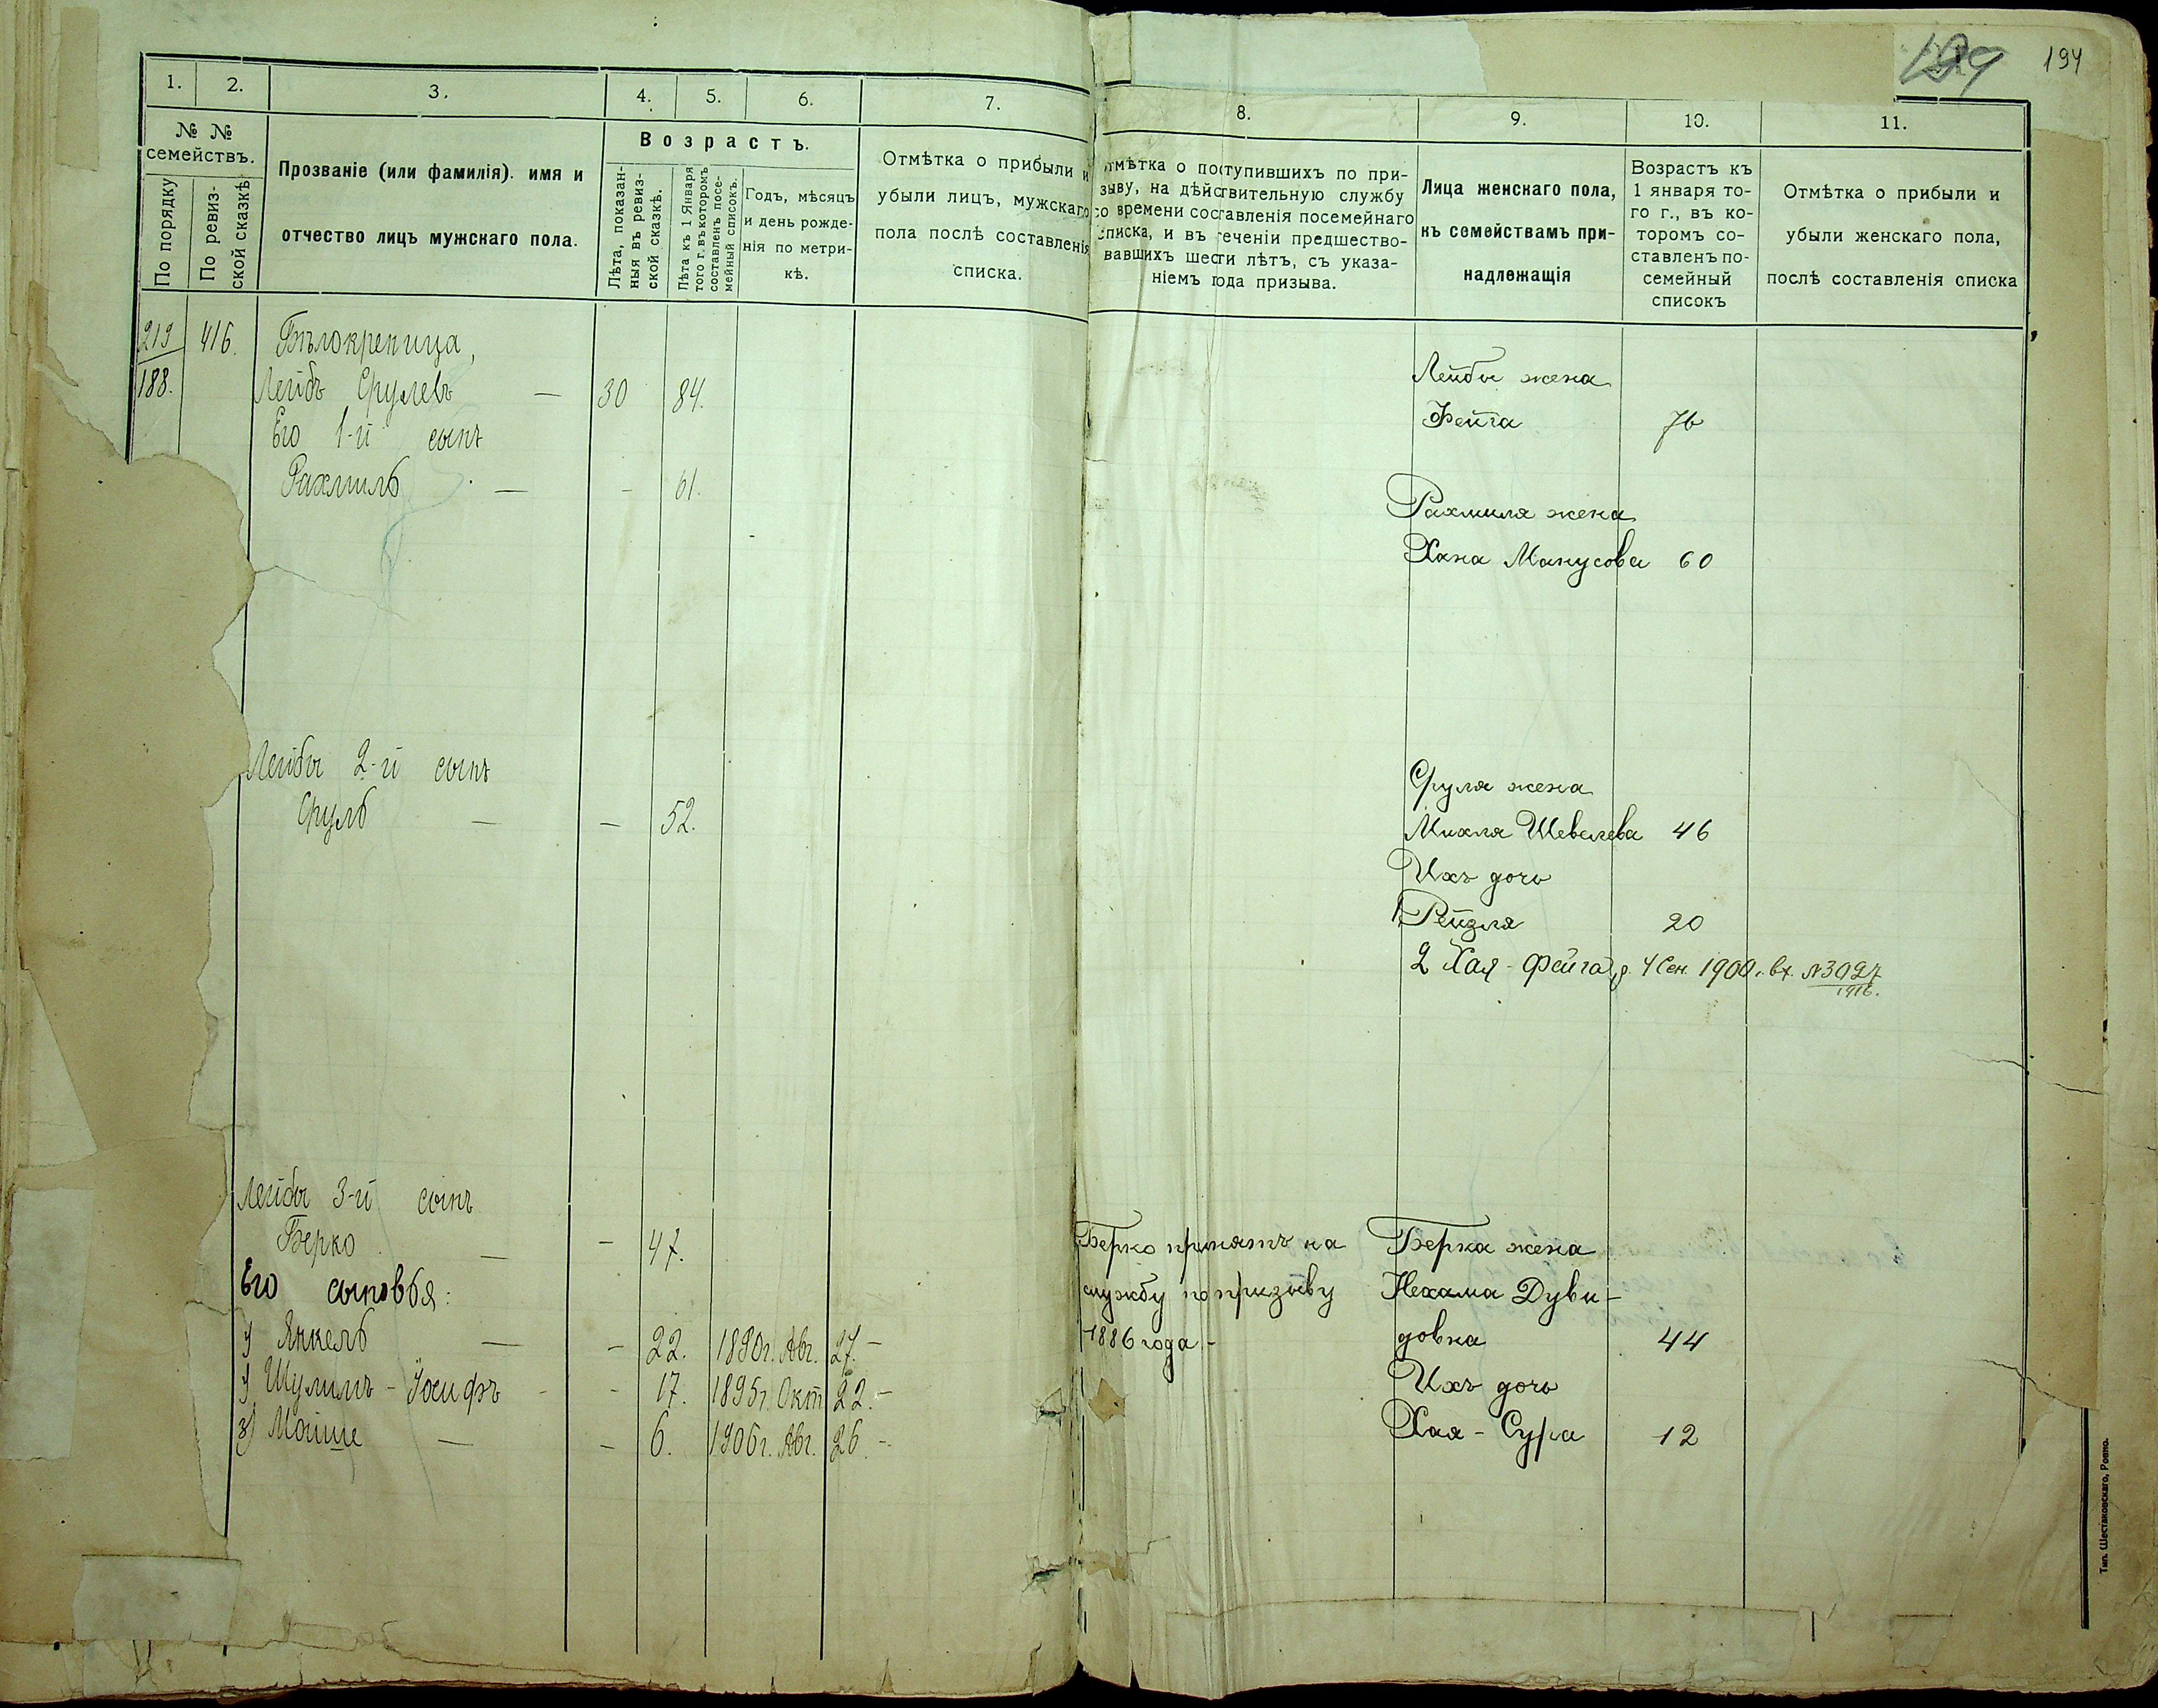 194
1.
2.
3.
4.
5.
6.
7.
8.
9.
10.
11.
№ №
семействъ.
По порядку
По ревиз-
ской сказкѣ
Прозваніе (или фамилія). имя и
отчество лицъ мужскаго пола.
Возрастъ.
Лѣта, показан-
ныя въ ревиз-
ской сказкѣ.
Лѣта къ 1 Января
того г. въ которомъ
составленъ посе-
мейный списокъ.
Годъ, мѣсяцъ
и день рожде-
нія по метри-
кѣ.
Отмѣтка о прибыли и
убыли лицъ, мужскаго
пола послѣ составленія
списка.
отмѣтка о поступившихъ по при-
зыву, на дѣйствительную службу
со времени составленія посемейнаго
списка, и въ теченіи предшество-
вавшихъ шести лѣтъ, съ указа-
ніемъ года призыва.
Лица женскаго пола,
къ семействамъ при-
надлежащія
Возрастъ къ
1 января то-
го г., въ ко-
торомъ со-
ставленъ по-
семейный
списокъ
Отмѣтка о прибыли и
убыли женскаго пола,
послѣ составленія списка
219 416. Бѣлокреница,
188. Лейбъ Срулевъ — 30 84.
Его 1-й сынъ
Рахмиль — - 61.
Лейбы жена
Фейга 76
Рахмиля жена
Хана Манусова 60
Лейбы 2-й сынъ
Сруль — — 52.
Сруля жена
Михля Шевелева 46
Ихъ дочь
1 Рейзля 20
2 Хая - Фейга р. 4 Сен. 1900 г. вх. №3027
1916.
Лейбы 3-й сынъ
Берко — - 47.
Его сыновья:
1) Янкель — - 22. 1890 г. Авг. 27. -
2) Шулимъ - Іосифъ - - 17. 1895 г. Окт. 22. -
3) Мойше — - 6. 1906 г. Авг. 26 -
Берко принятъ на
службу по призыву
1886 года -
Берка жена
Нехама Дуви-
довна 44
Ихъ дочь
Хая - Сура 12
Тип. Шестаковскаго, Ровно.